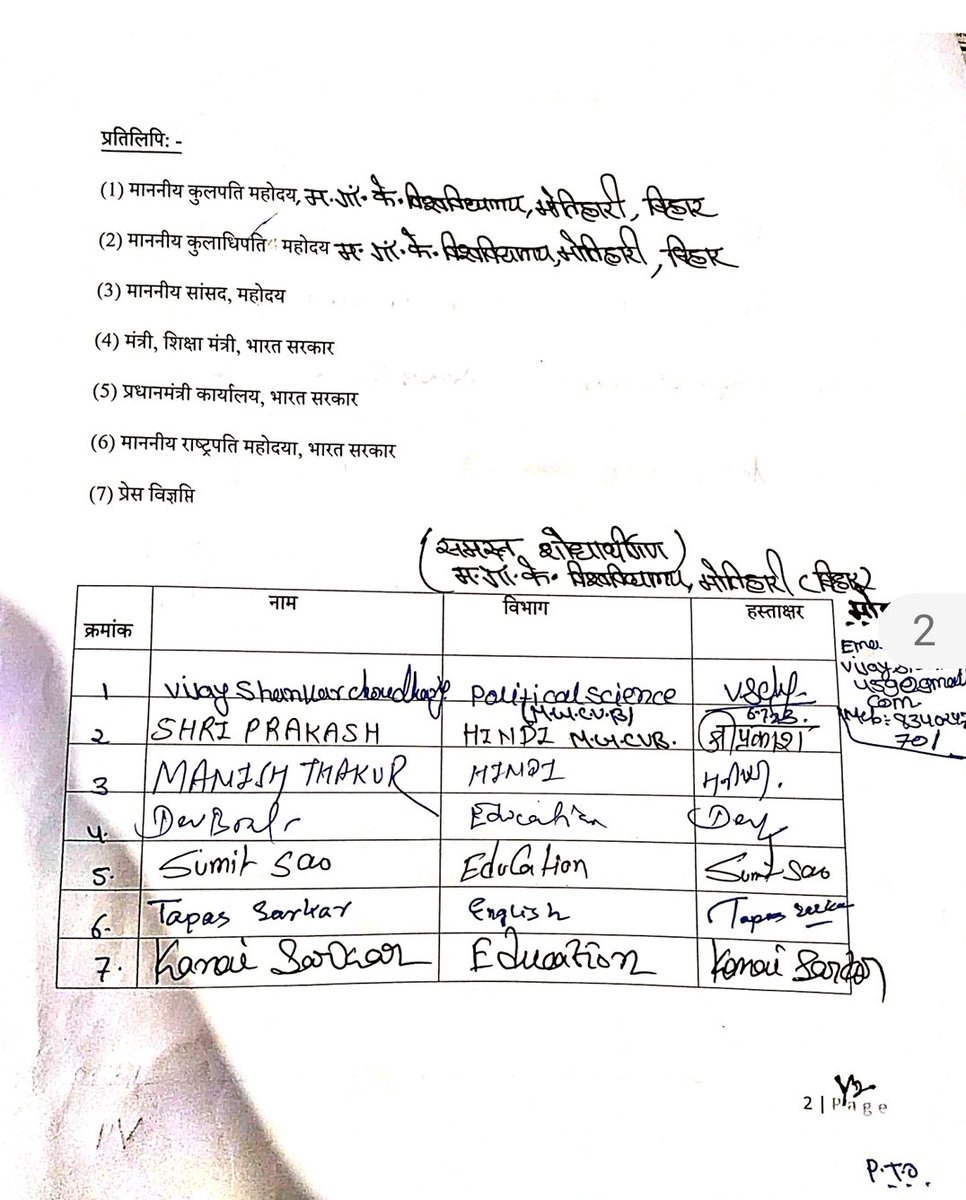 प्रतिलिपि: -
(1) माननीय कुलपति महोदय, म.गाँ.के.विश्वविद्यालय, मोतिहारी, बिहार
(2) माननीय कुलाधिपति महोदय म.गाँ.के.विश्वविद्यालय, मोतिहारी, बिहार
(3) माननीय सांसद, महोदय
(4) मंत्री, शिक्षा मंत्री, भारत सरकार
(5) प्रधानमंत्री कार्यालय, भारत सरकार
(6) माननीय राष्ट्रपति महोदया, भारत सरकार
(7) प्रेस विज्ञप्ति
(समस्त शोधार्थीगण)
म.गाँ.के. विश्वविद्यालय, मोतिहारी (बिहार
क्रमांक नाम विभाग हस्ताक्षर
2
1 Vijay Shankar Choudhary Political science
(M.G.C.U.B)
2 SHRI PRAKASH HINDI M.G.C.U.B. श्रीप्रकाश
3 MANISH THAKUR HINDI मनीष.
4. Education Dev
5. Sumit Sao Education Sumit Sao
6. Tapas Sarkar English Tapas Sarkar
7. Kanai Sarkar Education Kanai Sarkar
Com
701
2 | Page
P.T.O.